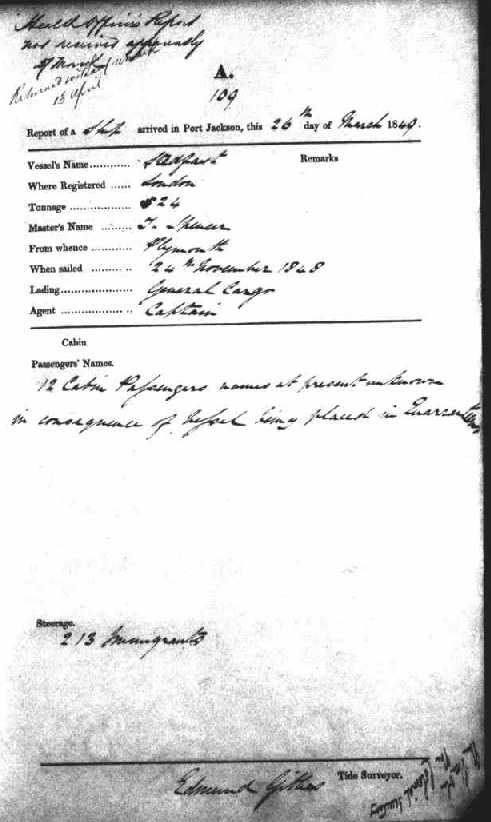 Health Officers Report
not received apparently
A.
109
Report of a Ship arrived in Port Jackson, this 26th day of March 1849.
Vessel's Name Stedfast Remarks
Where Registered London
Tonnage 524
Master's Name T. Spencer
From whence Plymouth
When sailed 24th November 1848
Lading General Cargo
Agent Captain
Cabin
Passengers' Names.
12 Cabin Passengers names at present unknown
in consequence of Vessel being placed in Quarantine
Steerage.
213 Immigrants
Edmund Tide Surveyor.